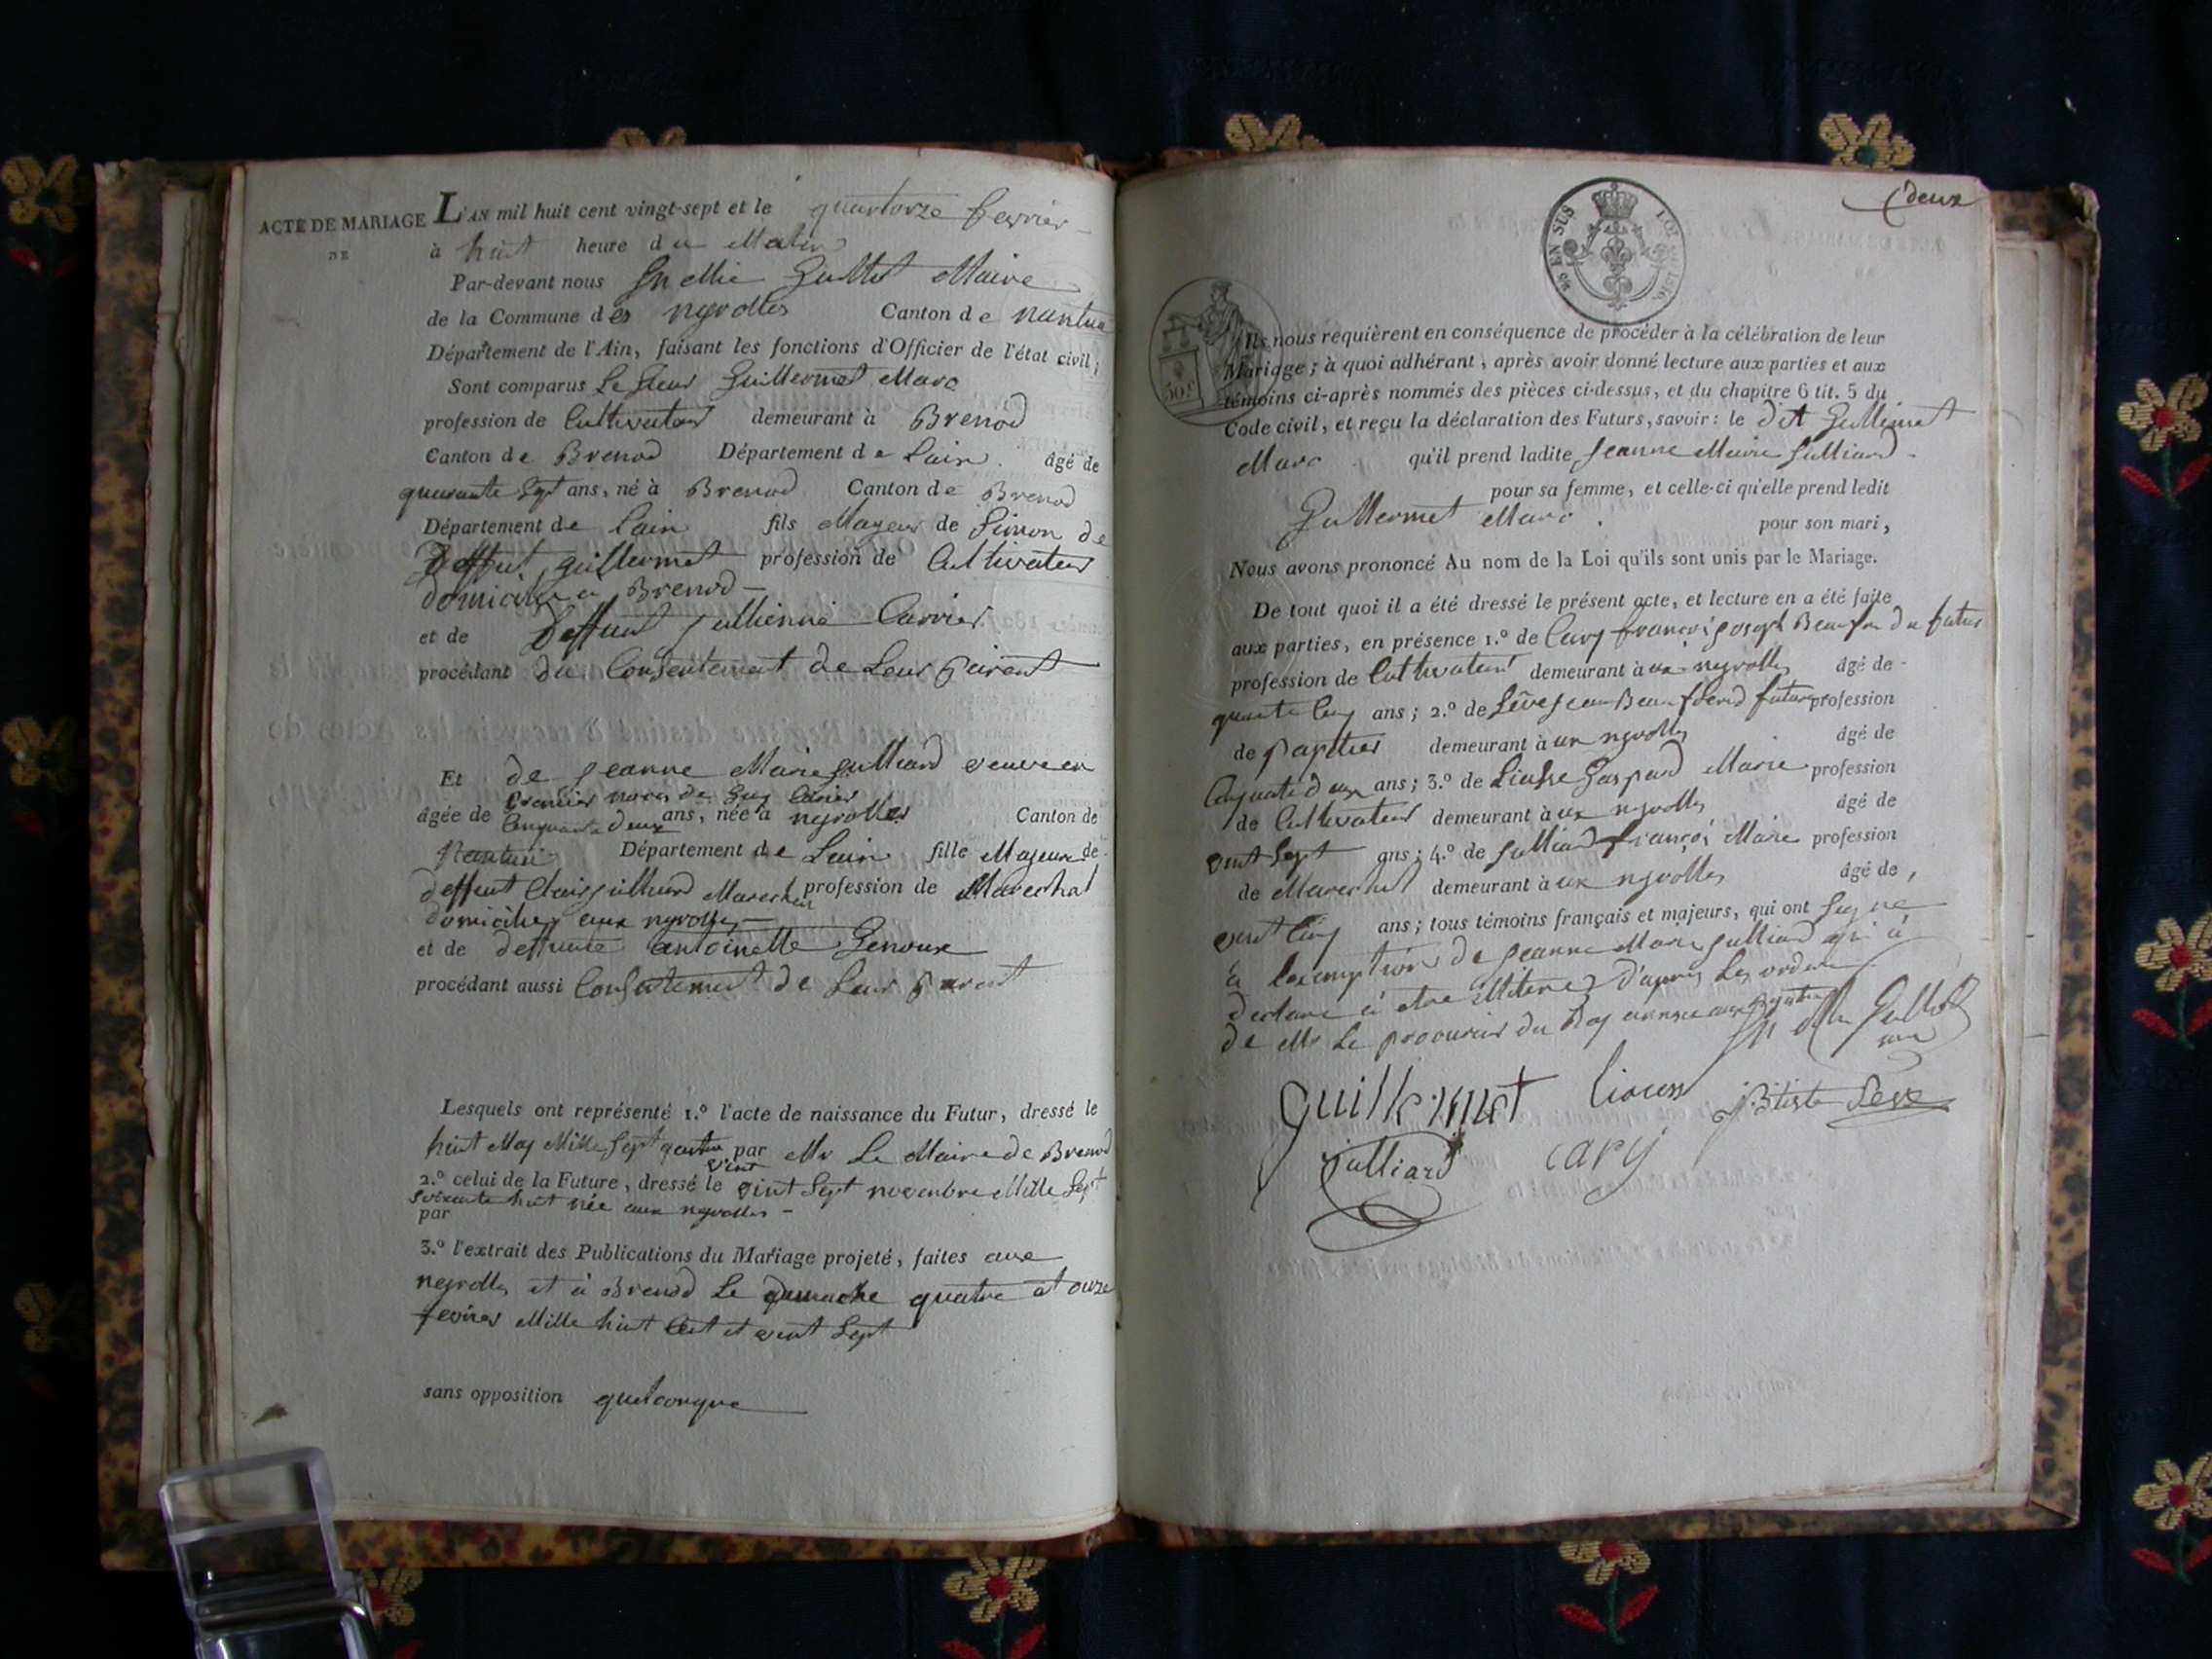 ACTE DE MARIAGE
DE
L'AN mil huit cent vingt-sept et le quartorze fevrier
à huit heure du Matin
Par-devant nous Maire
de la Commune des nyrolles Canton de nantua
Département de l'Ain, faisant les fonctions d'Officier de l'état civil;
Sont comparus Le Sieur Guillermet Marc
profession de Cultivateur demeurant à Brenod
Canton de Brenod Département de Lain âgé de
quarante Sept ans, né à Brenod Canton de Brenod
Département de Lain fils Mageur de Simon de
deffunt guillermet profession de Cultivateur
domicilie a Brenod
et de Deffunt Jullienne Carrier
procédant du Consentement de Leur parent
Et de Jeanne Marie Julliard veuve en
premier noces de Guy
âgée de Cinquante deux ans, née à nyrolles Canton de
Nantua Département de Lain fille Majeure de
deffunt Julliard Marechal profession de Marechal
domicilies aux nyrolles
et de deffunte antoinette Genoux
procédant aussi Consentement de Leur parent
Lesquels ont représenté 1.º l'acte de naissance du Futur, dressé le
huit May Mille Sept quatre vint par Mr Le Maire de Brenod
2.º celui de la Future, dressé le vint Sept novenbre Mille Sept
soixante huit née aux nyrolles
par
3.º l'extrait des Publications du Mariage projeté, faites aux
neyrolles et à Brenod Le dimache quatre et onze
fevrier Mille huit Cent et vint Sept
sans opposition quelconque
deux
EN SUS
LOI 1816
50 c
Ils nous requièrent en conséquence de procéder à la célébration de leur
Mariage; à quoi adhérant, après avoir donné lecture aux parties et aux
témoins ci-après nommés des pièces ci-dessus, et du chapitre 6 tit. 5 du
Code civil, et reçu la déclaration des Futurs, savoir: le dit Gullimet
Marc qu'il prend ladite Jeanne Marie Julliard
pour sa femme, et celle-ci qu'elle prend ledit
Gullermet Marc pour son mari,
Nous avons prononcé Au nom de la Loi qu'ils sont unis par le Mariage.
De tout quoi il a été dressé le présent acte, et lecture en a été faite
aux parties, en présence 1.º de Cary françois Joseph du futur
profession de Cultivateur demeurant à ux neyrolles âgé de
ans; 2.º de profession
de papitier demeurant à ux nyrolles âgé de
Cinquate deux ans; 3.º de Gaspard Marie profession
de Cultivateur demeurant à ux nyrolles âgé de
vint Sept ans; 4.º de Julliard françois Marie profession
de Marechal demeurant à ux nyrolles âgé de
vint Cinq ans; tous témoins français et majeurs, qui ont Signe
à Lexemption de Jeanne Marie Julliard qui à
declare à etre d'apres Les ordre
de Mr Le procureur du Roy
guillermet J Btiste Seve
Julliard Cary